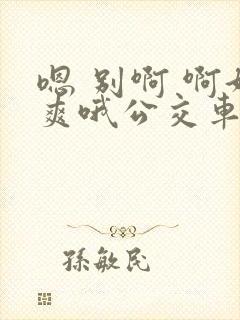 嗯 别啊 啊好
爽哦公交车
孫敏民